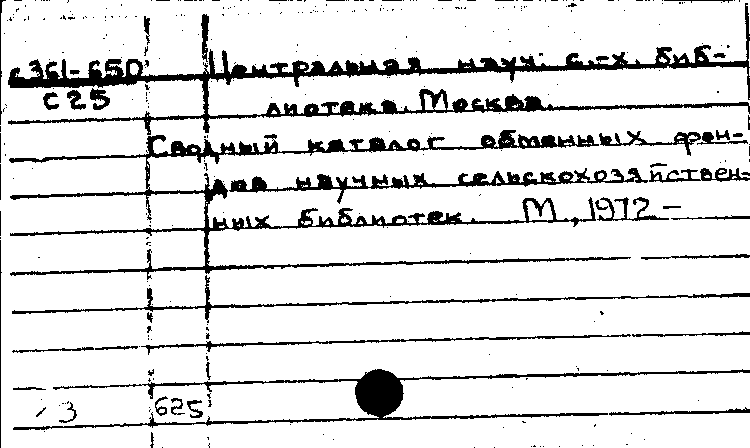 с361-650 Центральная науч. с.-х. биб-
С25 лиотека. Москва.
Сводный каталог обменных фон-
дов научных сельскохозяйствен-
ных библиотек. М., 1972 –
3 625